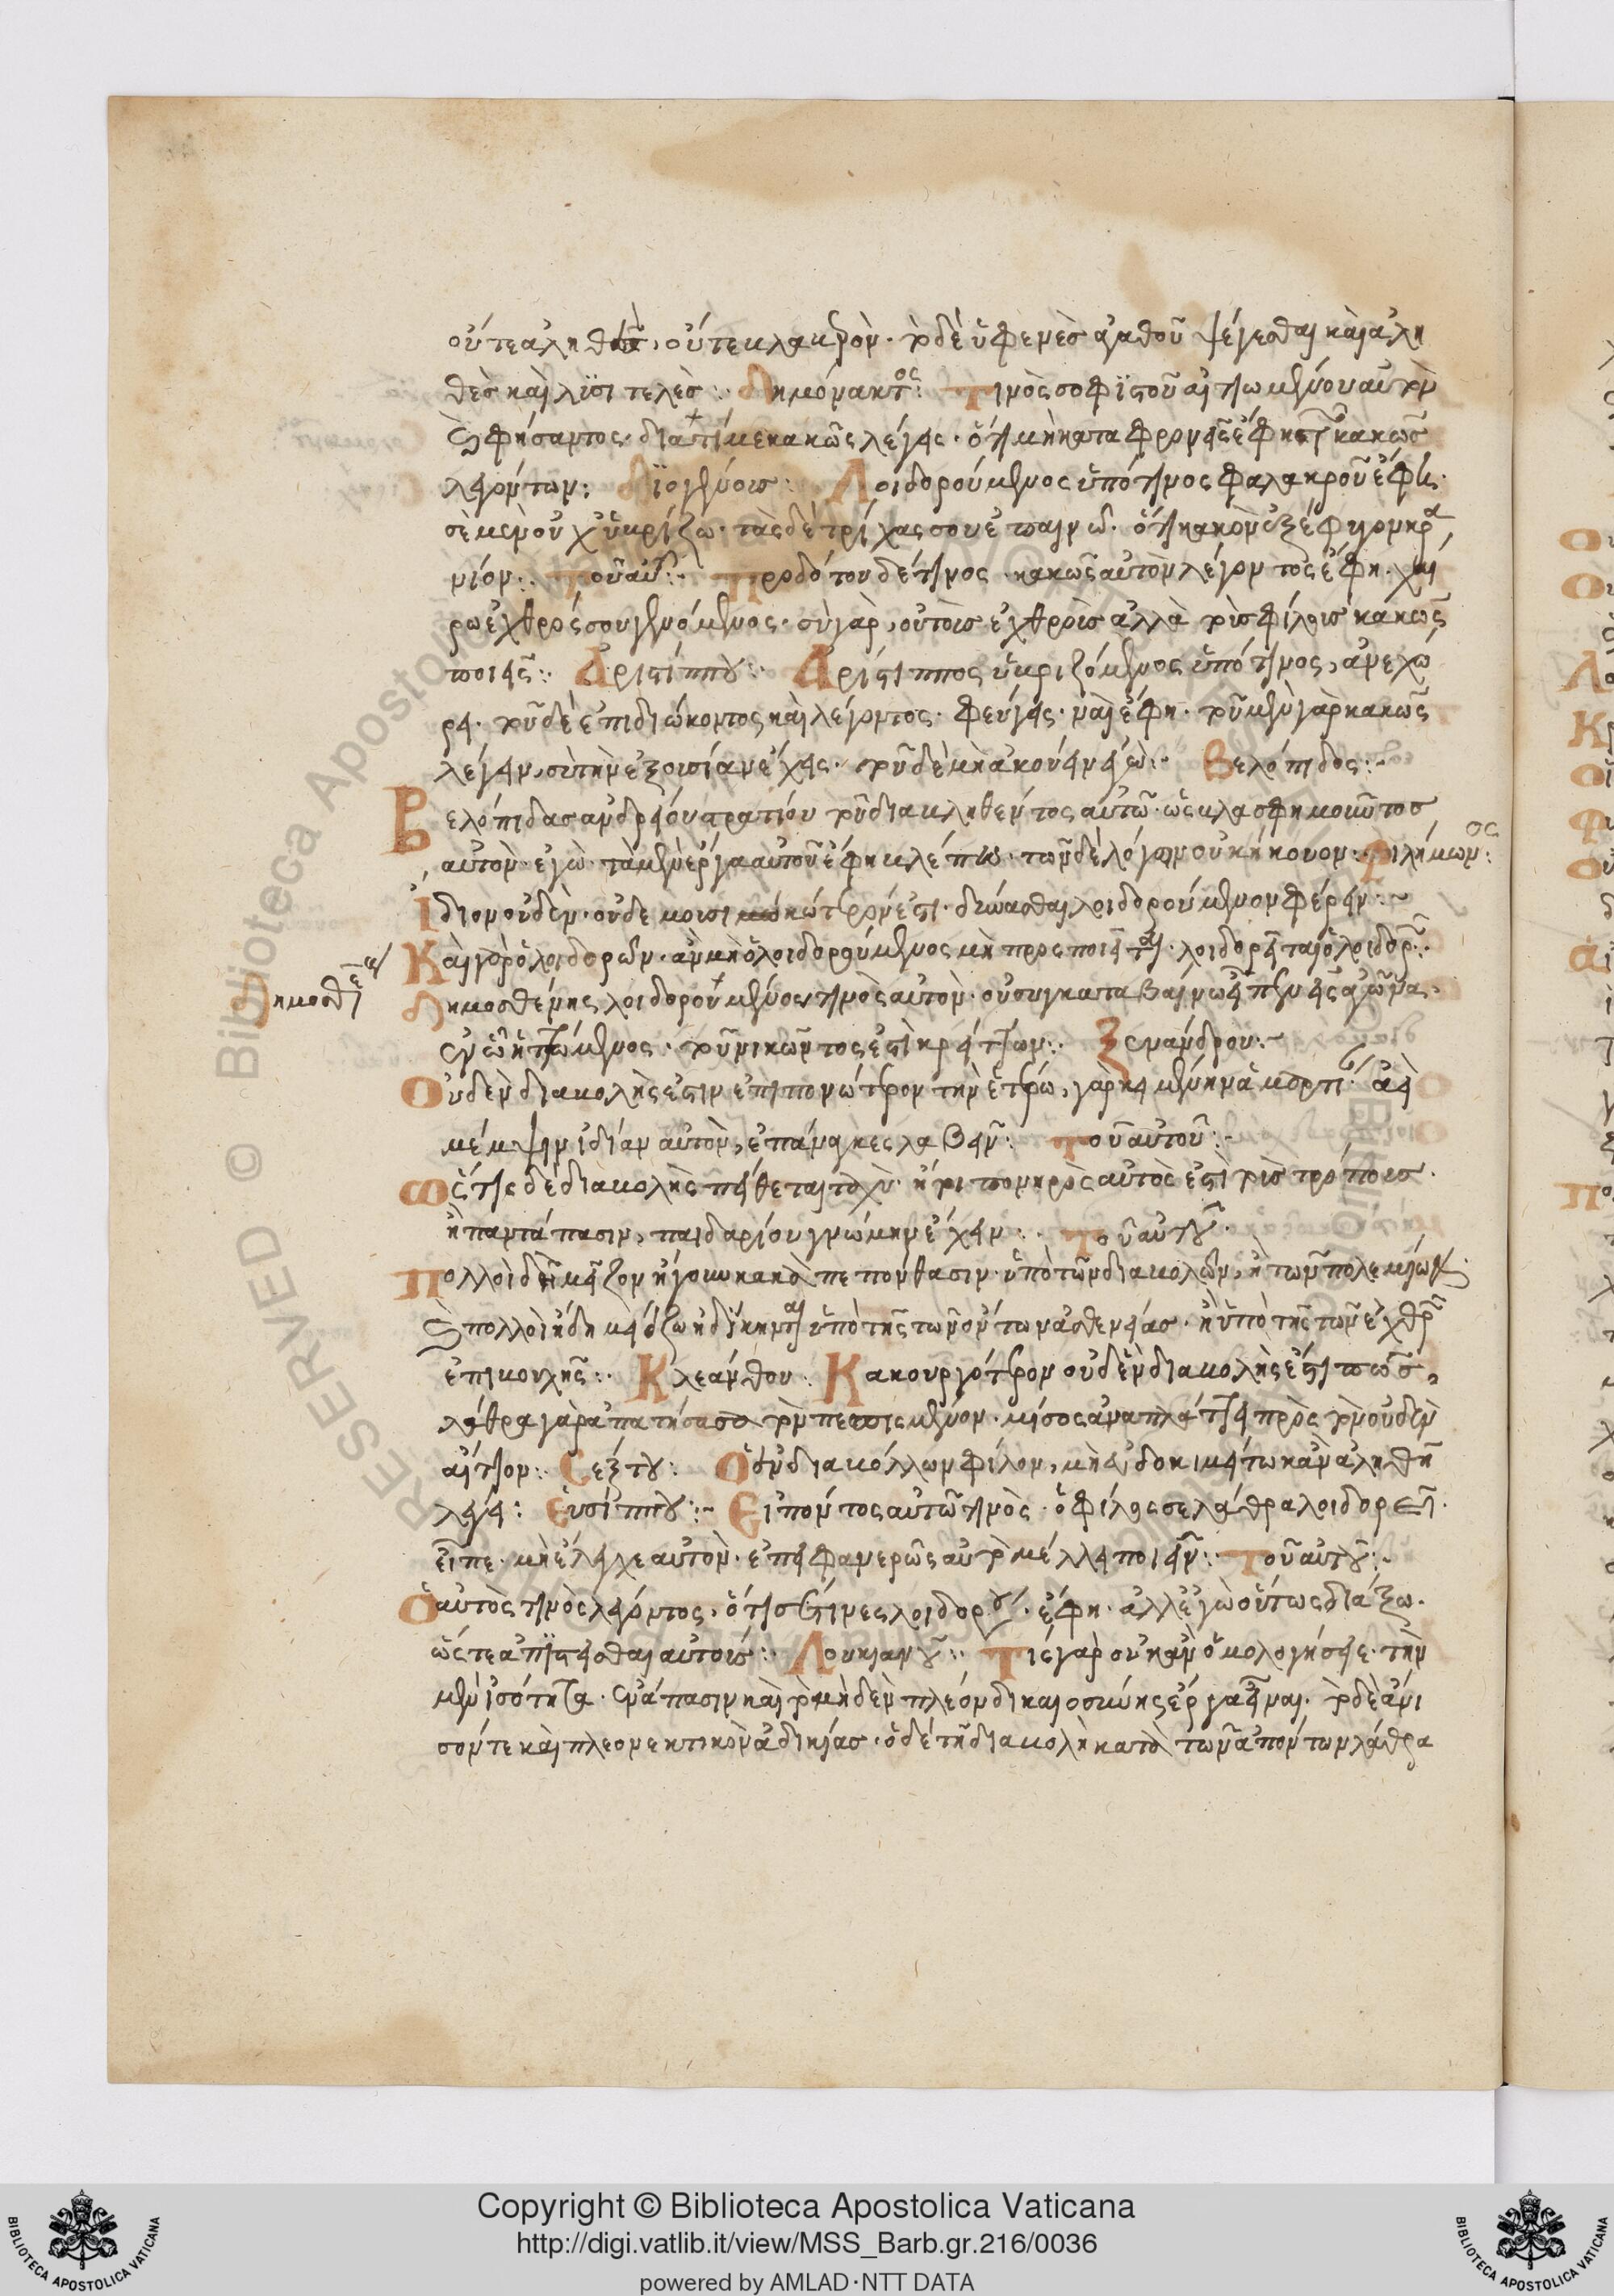 οὔτε ἀληθὲς, οὔτε βλαβερὸν. τὸ δὲ ὑφ' ἑνὸς ἀγαθοῦ ψέγεσθαι καὶ ἀλη
θὲς καὶ λυσιτελὲς: Δημώνακτος: Τινὸς σοφιστοῦ αἰτιωμένου αὐτὸν
καὶ φήσαντος. διατί με κακῶς λέγεις. ὅτι μὴ καταφρονεῖς ἔφη τῶν κακῶς
λεγόντων: Διογένους: Λοιδορούμενος ὑπό τινος φαλακροῦ ἔφη.
σὲ μὲν οὐχ ὑβρίζω. τὰς δὲ τρίχας σου ἐπαινῶ. ὅτι κακὸν ἐξέφυγον κρα
νίον: Τοῦ αὐτοῦ: προδότου δέ τινος κακῶς αὐτὸν λέγοντος ἔφη. χαί
ρω ἐχθρός σου γενόμενος. σὺ γὰρ, οὐ τοῖς ἐχθροῖς ἀλλὰ τοῖς φίλοις κακῶς
ποιεῖς: Ἀριστίππου: Ἀρίστιππος ὑβριζόμενος ὑπό τινος, ἀνεχώ
ρει. τοῦ δὲ ἐπιδιώκοντος καὶ λέγοντος. φεύγεις. ναὶ ἔφη. τοῦ μὲν γὰρ κακῶς
λέγειν, σὺ τὴν ἐξουσίαν ἔχεις. τοῦ δὲ μὴ ἀκούειν ἐγώ: Βελόπιδος:
Βελόπιδας ἀνδρείου στρατιώτου διαβληθέντος αὐτῶ. ὡς βλασφημοῦντος
αὐτὸν. ἐγὼ τὰ μὲν ἔργα αὐτοῦ ἔφη βλέπω. τῶν δὲ λόγων οὐκ ἤκουον: Φιλήμωνος:
ἴδιον οὐδὲν. οὐδὲ μουσικώτερόν ἐστι. δύνασθαι λοιδορούμενον φέρειν:
Καὶ γὰρ ὁ λοιδορῶν. ἂν μὴ ὁ λοιδορούμενος μὴ προσποιεῖται. λοιδορεῖται ὁ λοιδορῶν:
Δημοσθένει
Δημοσθένης λοιδορούμενός τινος αὐτὸν. οὐ συγκαταβαίνω εἶπεν εἰς ἀγῶνα.
ἐν ὧ ὁ ἡττώμενος τοῦ νικῶντος ἐστὶ κρείττων: Μενάνδρου:
Οὐδὲν διαβολῆς ἐστιν ἐπιπονώτερον τὴν ἑτέρω γὰρ κειμένην ἁμαρτίαν δεῖ
μέμψιν ἰδίαν αὐτὸν, ἐπάναγκες λαβεῖν: Τοῦ αὐτοῦ:
Ὅστις δὲ διαβολῆς πείθεται ταχὺ. ἤτοι πονηρὸς αὐτὸς ἐστὶ τοῖς τρόποις.
ἢ παντάπασιν, παιδαρίου γνώμην ἔχειν: Τοῦ αὐτοῦ.
Πολλοὶ δὲ μεῖζον ἤγουν κακὰ πεπόνθασιν. ὑπὸ τῶν διαβολῶν, ἢ τῶν πολεμίων.
καὶ πολλοὶ ἤδη μείζω ἠδίκηνται ὑπὸ τῆς τῶν ὄντων ἀσθενείας. ἢ ὑπὸ τῆς τῶν ἐχθρῶν
ἐπιβουλῆς: Κλεάνθου: Κακουργότερον οὐδὲν διαβολῆς ἔστί πως,
λάθρα γὰρ ἀπατήσασα τὸν πεπεισμένον. μῖσος ἀναπλάττει πρὸς τὸν οὐδὲν
αἴτιον: Σέξτου: Ὁ ἐνδιαβάλλων φίλον, μὴ εὐδοκιμείτω κἂν ἀληθῆ
λέγει: Εὐσίππου: Εἰπόντος αὐτῶ τινὸς. ὁ φίλος σε λάθρα λοιδορεῖ.
εἶπε. μὴ ἔλεγχε αὐτὸν. ἐπεὶ φανερῶς αὐτὸ μέλλει ποιεῖν: Τοῦ αὐτοῦ:
Ὁ αὐτὸς τινὸς λέγοντος. ὅτι σέ τινες λοιδοροῦσι. ἔφη. ἀλλ' ἐγὼ οὕτως διάξω.
ὥστε ἀπιστεῖσθαι αὐτούς: Λουκιανοῦ: Τίς γὰρ οὐκ ἂν ὁμολογήσειε. τὴν
μὲν ἰσότητα. ἐν ἅπασιν καὶ τὸ μηδὲν πλέον δικαιοσύνης ἔργα εἶναι. τὸ δὲ ἄνι
σόν τε καὶ πλεονεκτικὸν ἀδικίας. ὁ δὲ τῆ διαβολῆ κατὰ τῶν ἀπόντων λάθρα
Copyright © Biblioteca Apostolica Vaticana
http://digi.vatlib.it/view/MSS_Barb.gr.216/0036
powered by AMLAD·NTT DATA